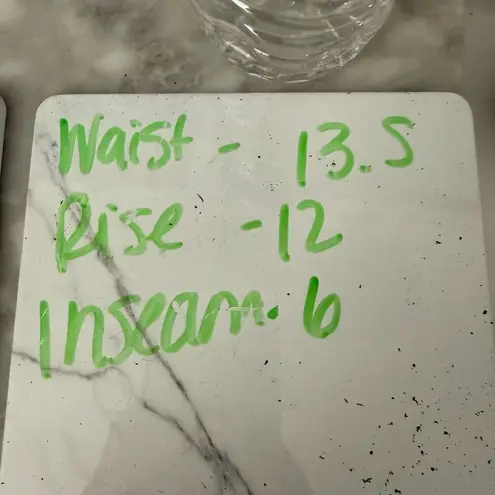 Waist - 13.5
Rise - 12
Inseam. 6